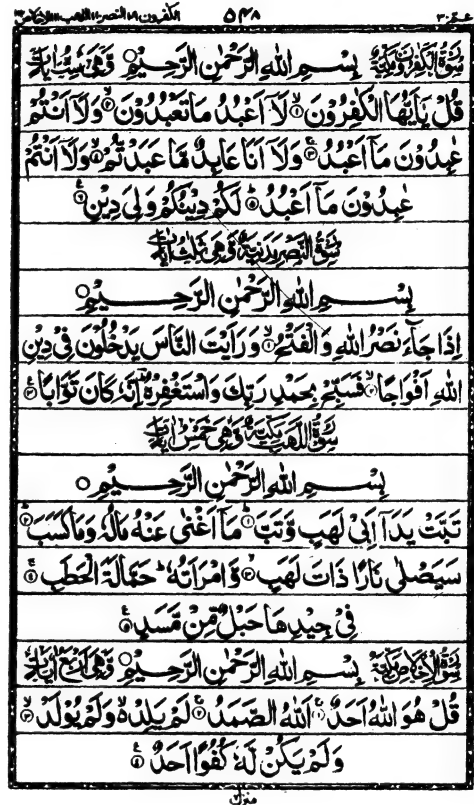 عمّ ٣٠ ٥٤٨ الكفرون النصر اللهب الاخلاص
سُوْرَةُ الْكٰفِرُوْنَ مَكِّيَّةٌ بِسْمِ اللهِ الرَّحْمٰنِ الرَّحِيْمِ ۝ وَّهِيَ سِتُّ اٰيَاتٍ
قُلْ يٰۤاَيُّهَا الْكٰفِرُوْنَ ۙ﴿١﴾ لَاۤ اَعْبُدُ مَا تَعْبُدُوْنَ ۙ﴿٢﴾ وَلَاۤ اَنْتُمْ
عٰبِدُوْنَ مَاۤ اَعْبُدُ ۚ﴿٣﴾ وَلَاۤ اَنَا عَابِدٌ مَّا عَبَدْتُّمْ ۙ﴿٤﴾ وَلَاۤ اَنْتُمْ
عٰبِدُوْنَ مَاۤ اَعْبُدُ ؕ﴿٥﴾ لَكُمْ دِيْنُكُمْ وَلِيَ دِيْنِ ﴿٦﴾
سُوْرَةُ النَّصْرِ مَدَنِيَّةٌ وَّهِيَ ثَلٰثُ اٰيَاتٍ
بِسْمِ اللهِ الرَّحْمٰنِ الرَّحِيْمِ ۝
اِذَا جَآءَ نَصْرُ اللهِ وَالْفَتْحُ ۙ﴿١﴾ وَرَاَيْتَ النَّاسَ يَدْخُلُوْنَ فِيْ دِيْنِ
اللهِ اَفْوَاجًا ۙ﴿٢﴾ فَسَبِّحْ بِحَمْدِ رَبِّكَ وَاسْتَغْفِرْهُ ؕ اِنَّهٗ كَانَ تَوَّابًا ﴿٣﴾
سُوْرَةُ اللَّهَبِ مَكِّيَّةٌ وَّهِيَ خَمْسُ اٰيَاتٍ
بِسْمِ اللهِ الرَّحْمٰنِ الرَّحِيْمِ ۝
تَبَّتْ يَدَاۤ اَبِيْ لَهَبٍ وَّتَبَّ ؕ﴿١﴾ مَاۤ اَغْنٰى عَنْهُ مَالُهٗ وَمَا كَسَبَ ؕ﴿٢﴾
سَيَصْلٰى نَارًا ذَاتَ لَهَبٍ ۙ﴿٣﴾ وَّامْرَاَتُهٗ ؕ حَمَّالَةَ الْحَطَبِ ۚ﴿٤﴾
فِيْ جِيْدِهَا حَبْلٌ مِّنْ مَّسَدٍ ﴿٥﴾
سُوْرَةُ الْاِخْلَاصِ مَكِّيَّةٌ بِسْمِ اللهِ الرَّحْمٰنِ الرَّحِيْمِ ۝ وَّهِيَ اَرْبَعُ اٰيَاتٍ
قُلْ هُوَ اللهُ اَحَدٌ ۚ﴿١﴾ اَللهُ الصَّمَدُ ۚ﴿٢﴾ لَمْ يَلِدْ ۙ وَلَمْ يُوْلَدْ ۙ﴿٣﴾
وَلَمْ يَكُنْ لَّهٗ كُفُوًا اَحَدٌ ﴿٤﴾
منزل